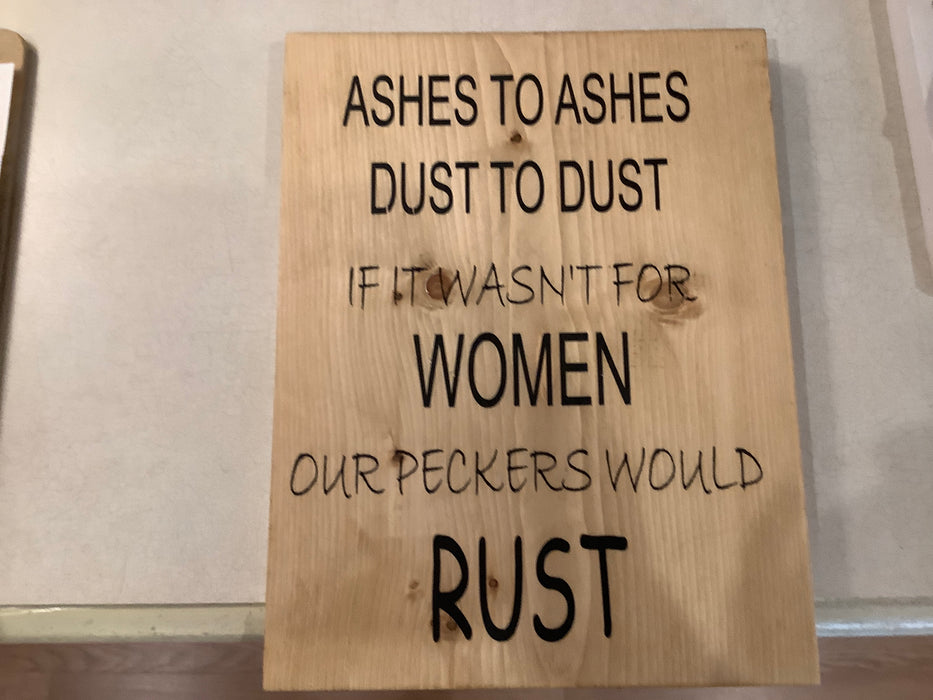 ASHES TO ASHES
DUST TO DUST
IF IT WASN'T FOR
WOMEN
OUR PECKERS WOULD
RUST